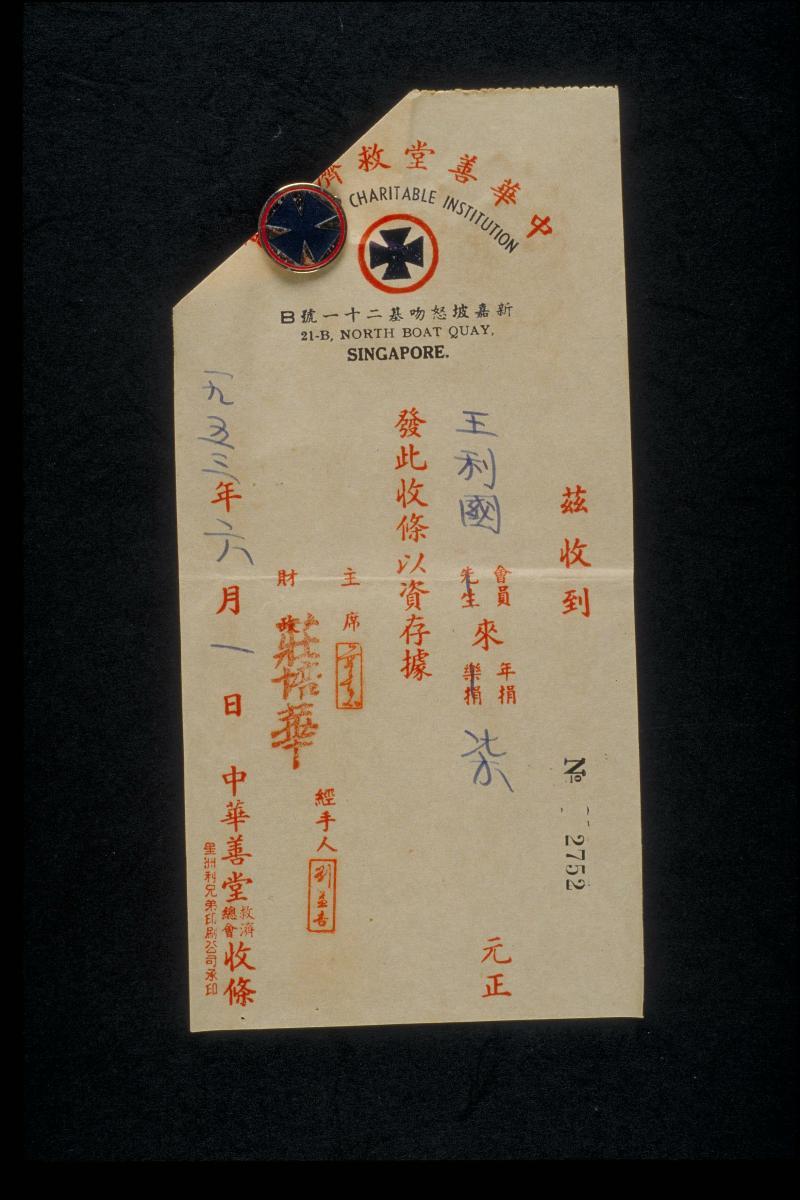 中華善堂救濟
CHARITABLE INSTITUTION
新嘉坡怒吻基二十一號B
21-B, NORTH BOAT QUAY,
SINGAPORE.
茲收到
№ 2752
會員 年捐
王利國 先生 來 樂捐 柒 元正
發此收條以資存據
主席
財政 莊培華
經手人 劉益吉
一九五三年六月一日 中華善堂救濟總會收條
星洲利兄弟印刷公司承印